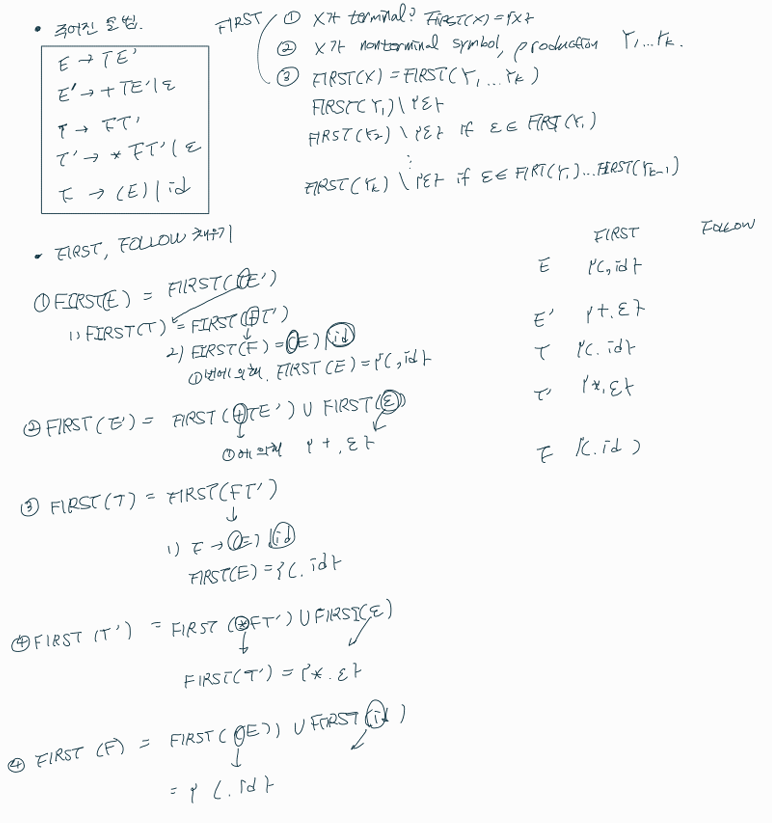 • 주어진 문법.
E → TE'
E' → + TE' | ε
T → FT'
T' → * FT' | ε
F → (E) | id
FIRST
① X가 terminal? FIRST(X) = {X}
② X가 nonterminal symbol, production Y1...Yk.
③ FIRST(X) = FIRST(Y1...Yk)
FIRST(Y1) \ {ε}
FIRST(Y2) \ {ε} if ε ∈ FIRST(Y1)
⋮
FIRST(Yk) \ {ε} if ε ∈ FIRT(Y1)...FIRST(Yk-1)
• FIRST, FOLLOW 채우기
① FIRST(E) = FIRST(TE')
1) FIRST(T) = FIRST(FT')
2) FIRST(F) = (E) | id
①번에 의해, FIRST(E) = {(, id}
② FIRST(E') = FIRST(+TE') ∪ FIRST(ε)
①에 의해 {+, ε}
③ FIRST(T) = FIRST(FT')
1) F → (E) | id
FIRST(E) = {(. id}
④ FIRST(T') = FIRST(*FT') ∪ FIRST(ε)
FIRST(T') = {*. ε}
④ FIRST(F) = FIRST((E)) ∪ FIRST(id)
= {(. id}
FIRST FOLLOW
E {(, id}
E' {+. ε}
T {(. id}
T' {*, ε}
F {(. id)